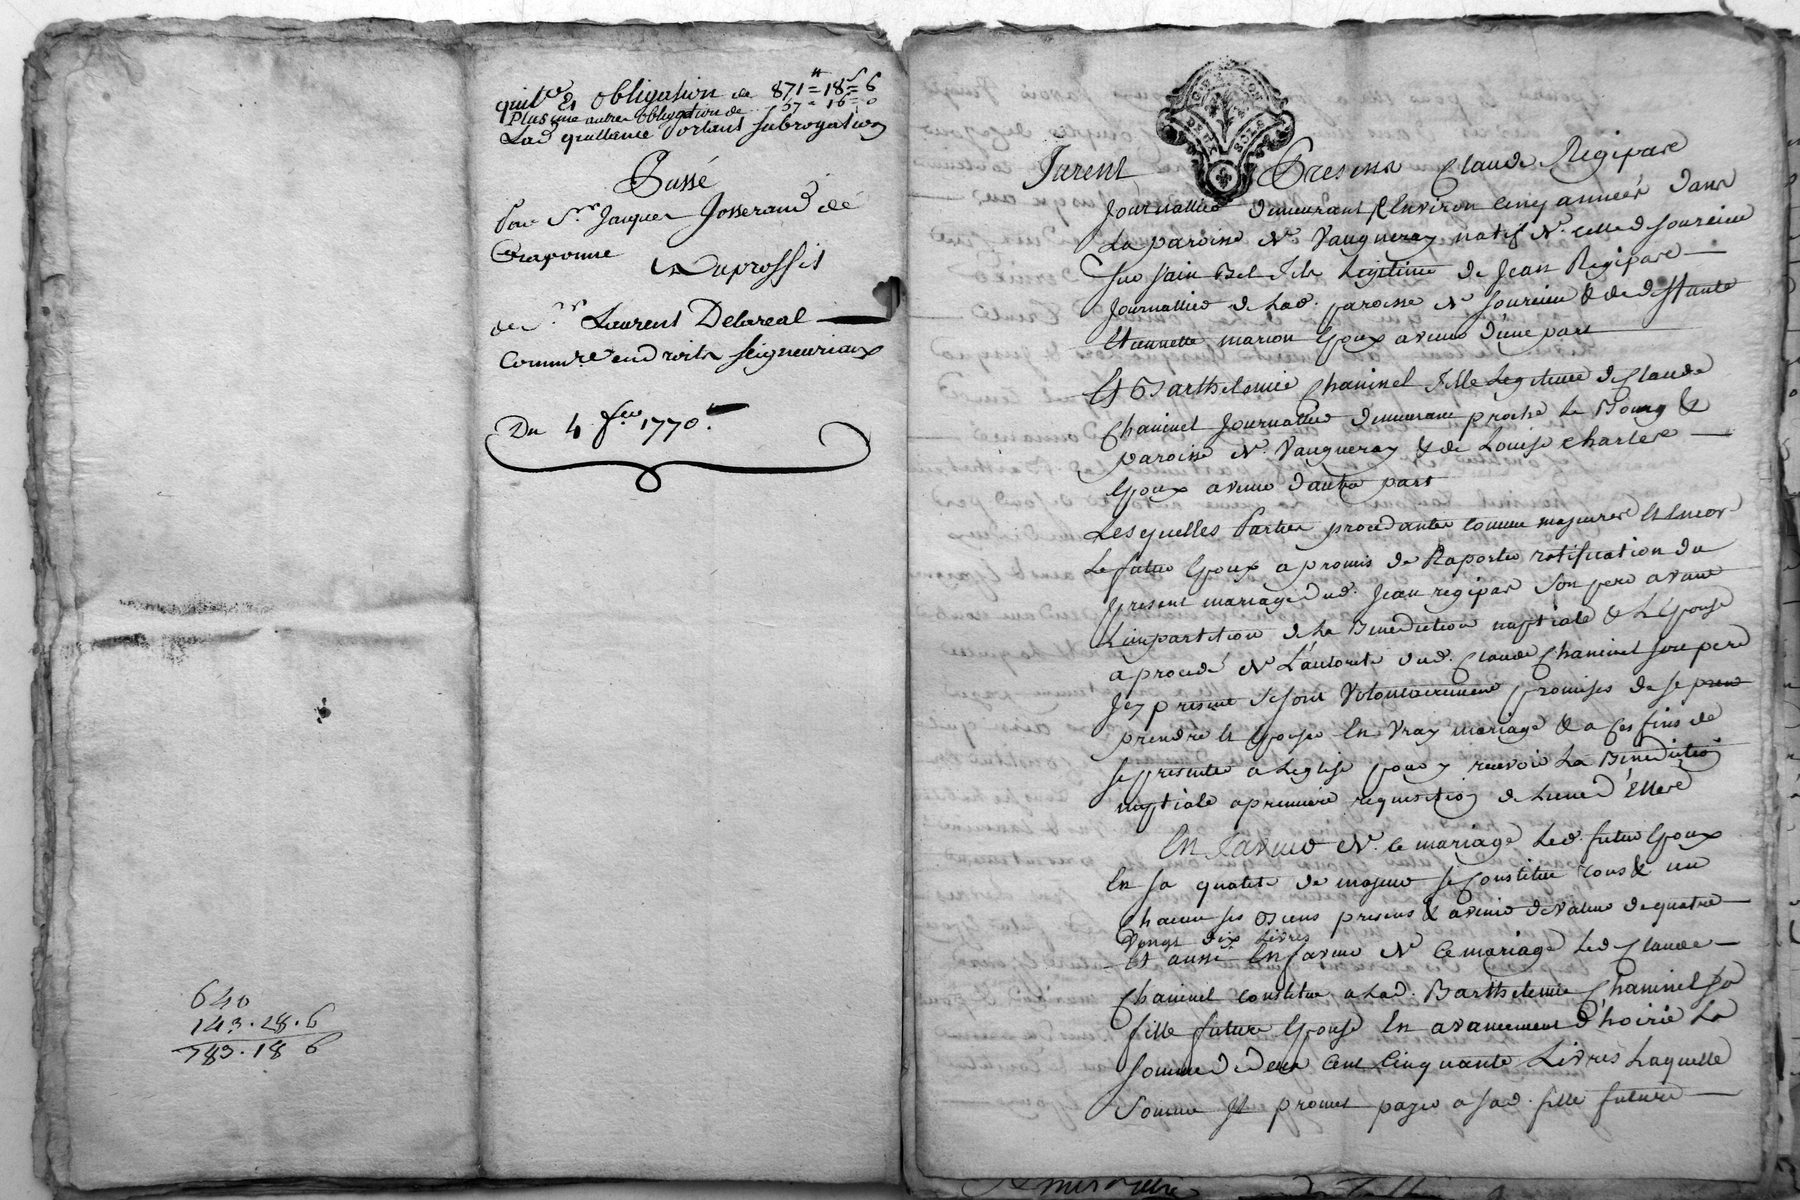 quitce & obligation de 871# = 18s = 6
Plus une autre obligation de 57 = 16 = 0
Lad quittance portant subrogation
Passé
Par Sr Jacques Josserand de
Craponne
Au proffit
de Sr Laurent Delareal
Commre en droits seigneuriaux
Du 4 1770
640
143 . 18 . 6
783 . 18 6
GEN LYON
DEUX SOLS
Furent Presens Claude Regipas
Journallier demeurant depuis environ cinq années dans
La paroisse de Vaugneray natif de celle de Sourcieu
sur sain Bel fils Legitime de Jean Regipas
Journallier de Lad. paroisse de Sourcieu & de deffunte
Etiennette marion Epoux avenir d'une part
Et Barthelemie Chaninel fille Legitime de Claude
Chaninel Journallier demeurant proche Le Bourg &
paroisse de Vaugneray & de Louise
Epoux avenir d'autre part
Lesquelles Parties procedantes comme majeures Et encor
Le futur Epoux a promis de Raporter ratification du
present mariage dud. Jean regipas son pere avant
L'impartition de La Benediction nuptiale & L'Epouse
a procedé de L'autorité dud. Claude Chaninel son pere
Icy present se sont volontairement promises de se
prendre Et Epouser En vray mariage & a ces fins de
se presenter a Leglise pour y recevoir La Benediction
nuptiale a premiere requisition de Lune d'Elles
En faveur de ce mariage Led. futur Epoux
En sa qualité de majeur se Constitue tous & un
Chacun ses Biens presens & avenir de valeur de quatre
vingt dix Livres
Et aussi En faveur de ce mariage Led Claude
Chaninel constitue a Lad. Barthelemie Chaninel sa
fille future Epouse En avancement d'hoirie La
somme de deux cent Cinquante Livres Laquelle
somme Il promet payer a sad. fille future